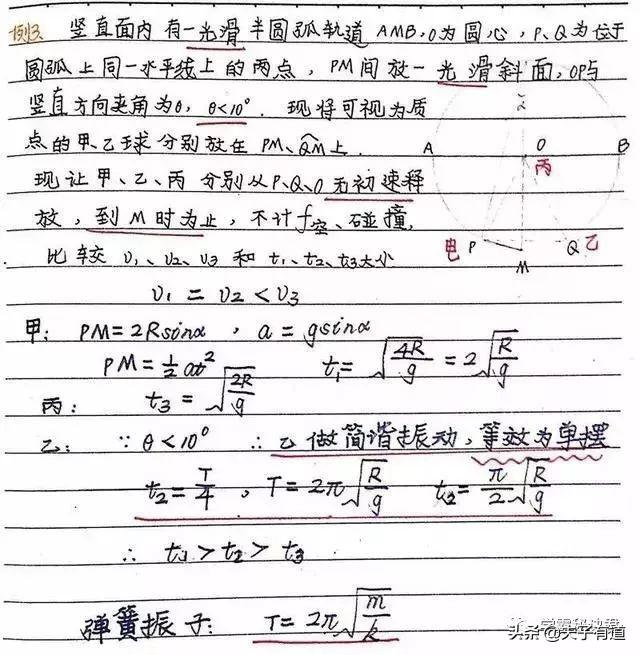 例3. 竖直面内有一光滑半圆弧轨道AMB,O为圆心,P、Q为位于
圆弧上同一水平线上的两点,PM间放一光滑斜面,OP与
竖直方向夹角为θ,θ<10°.现将可视为质
点的甲、乙球分别放在PM、QM上.
现让甲、乙、丙分别从P、Q、O无初速释
放,到M时为止,不计f空、碰撞,
比较 υ1、υ2、υ3 和 t1、t2、t3大小
A
O
B
丙
P
M
Q
乙
υ1 = υ2 < υ3
甲: PM=2Rsinα , a=gsinα
PM=½at² t1=√(4R/g)=2√(R/g)
丙: t3=√(2R/g)
乙: ∵ θ<10° ∴乙做简谐振动,等效为单摆
t2=T/4 , T=2π√(R/g) t2=π/2√(R/g)
∴ t1>t2>t3
弹簧振子: T=2π√(m/k)
头条@天宇有道